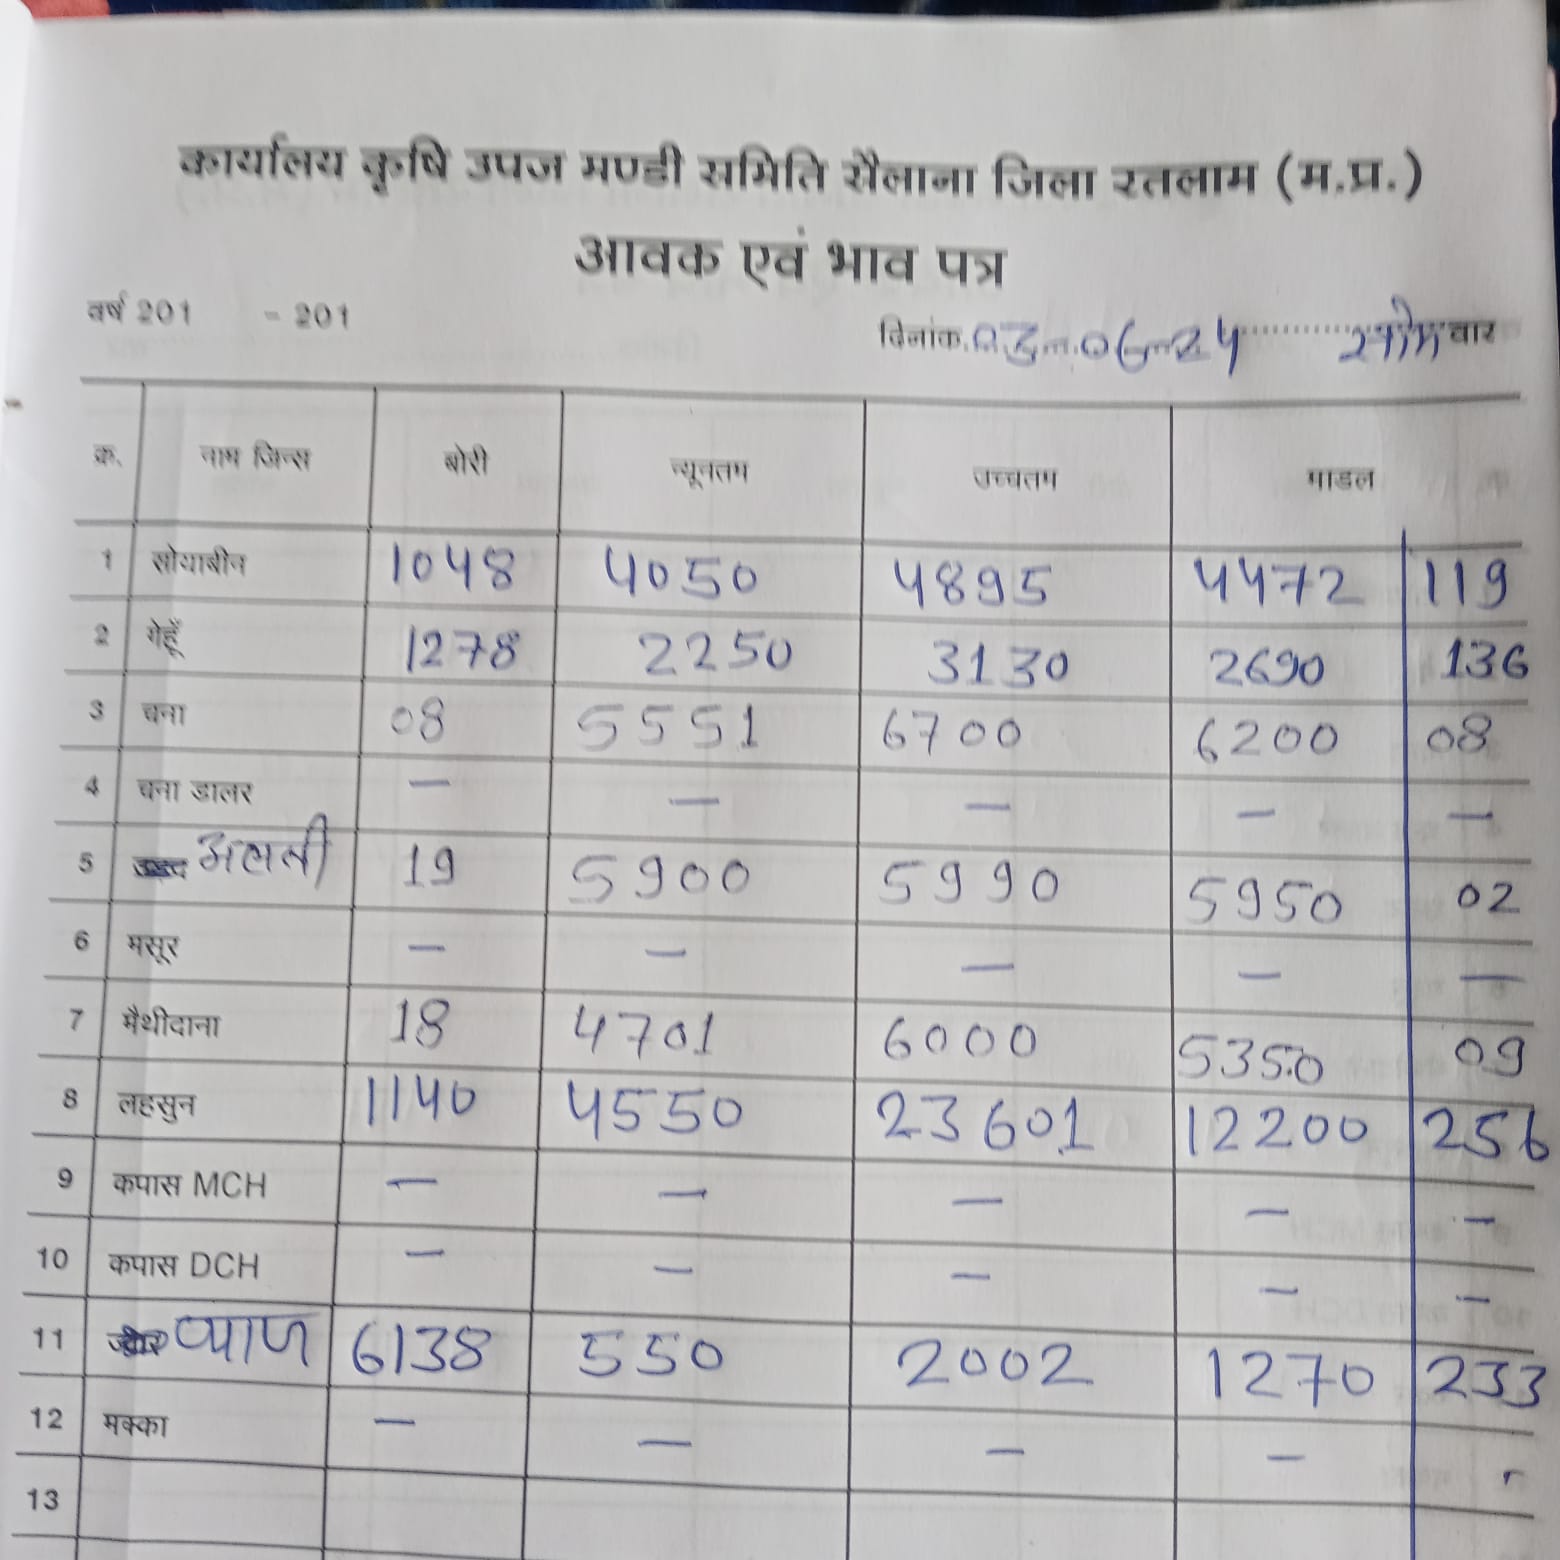 कार्यालय कृषि उपज मण्डी समिति सैलाना जिला रतलाम (म.प्र.)
आवक एवं भाव पत्र
वर्ष 201 - 201
दिनांक. 03-06-24 सोमवार
क्र. नाम जिन्स बोरी न्यूनतम उच्चतम माडल
1 सोयाबीन 1048 4050 4895 4472 119
2 गेहूँ 1278 2250 3130 2690 136
3 चना 08 5551 6700 6200 08
4 चना डालर — — — — —
5 अलसी 19 5900 5990 5950 02
6 मसूर — — — — —
7 मैथीदाना 18 4701 6000 5350 09
8 लहसुन 1140 4550 23601 12200 256
9 कपास MCH — — — — —
10 कपास DCH — — — — —
11 प्याज 6138 550 2002 1270 233
12 मक्का — — — —
13